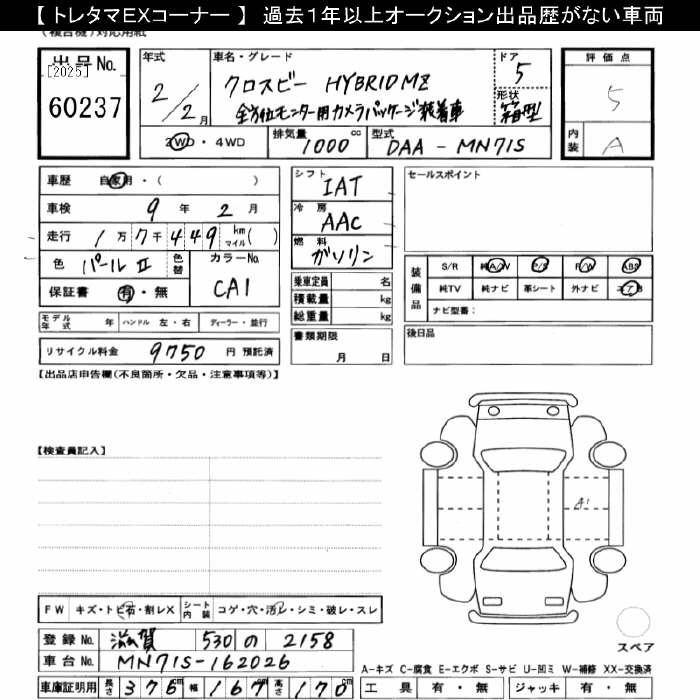 【 トレタマEXコーナー 】 過去1年以上オークション出品歴がない車両
出品No.
[2025]
60237
年式
2/2月
車名・グレード
クロスビー HYBRID MZ
全方位モニター用カメラパッケージ装着車
ドア
5
形状
箱型
評価点
5
内装
A
2WD・4WD
排気量
1000cc
型式
DAA-MN71S
車歴 自家用・( )
車検 9年 2月
走行 1万7千449 km マイル( )
色 パールⅡ 色替
カラーNo.
CA1
保証書 有・無
シフト
IAT
冷房
AAC
燃料
ガソリン
乗車定員 名
積載量 kg
総重量 kg
セールスポイント
装備品
S/R 純A/W P/S P/W ABS
純TV 純ナビ 革シート 外ナビ エアB
ナビ型番:
モデル年式 年 ハンドル 左・右 ディーラー・並行
リサイクル料金 9750 円 預託済
書類期限
月 日
後日品
【出品店申告欄(不良箇所・欠品・注意事項等)】
【検査員記入】
A1
FW キズ・トビ石・割レX シート内装 コゲ・穴・汚レ・シミ・破レ・スレ
登録No. 滋賀 530 の 2158
車台No. MN71S-162026
車庫証明用 長さ 376cm 幅 167cm 高さ 170cm
スペア
A-キズ C-腐食 E-エクボ S-サビ U-凹ミ W-補修 XX-交換済
工具 有・無 ジャッキ 有・無